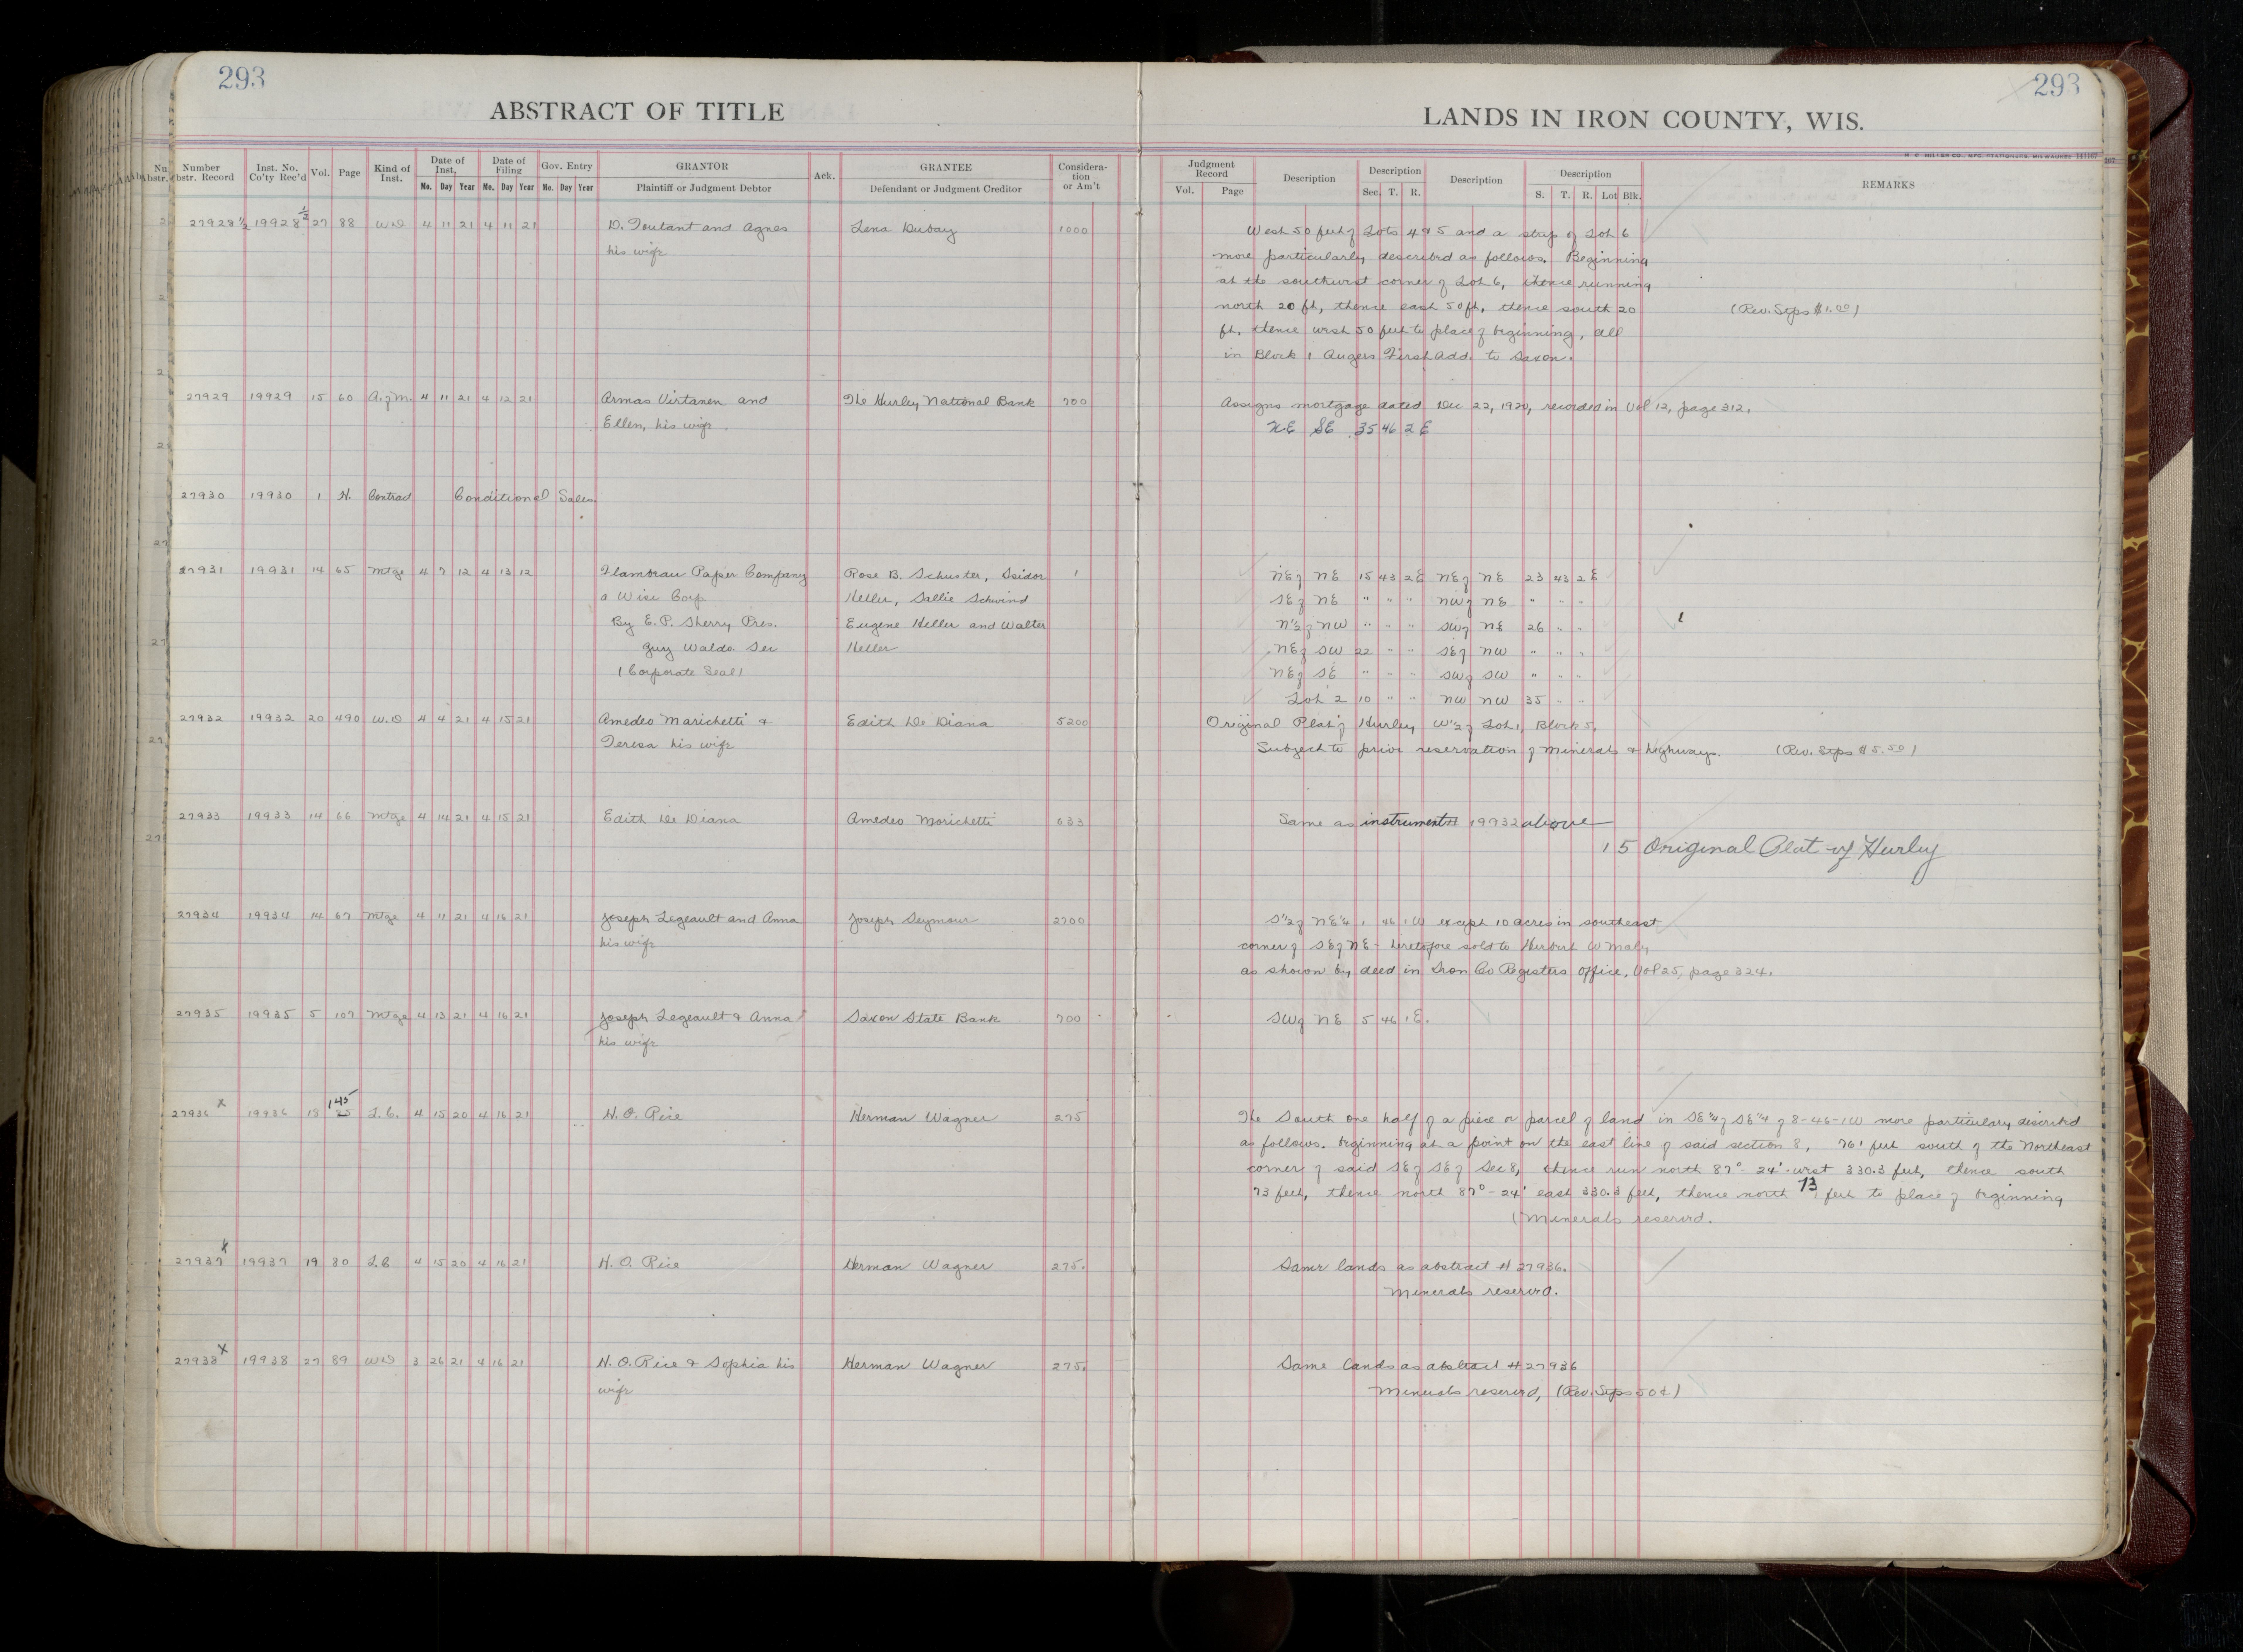 293
293
ABSTRACT OF TITLE
LANDS IN IRON COUNTY, WIS.
Number
bstr. Record
Inst. No.
Co'ty Rec'd
Vol.
Page
Kind of
Inst.
Date of
Inst.
Mo. Day Year
Date of
Filing
Mo. Day Year
Gov. Entry
Mo. Day Year
GRANTOR
Plaintiff or Judgment Debtor
Ack.
GRANTEE
Defendant or Judgment Creditor
Considera-
tion
or Am't
Judgment
Record
Vol. Page
Description
Description
Sec. T. R.
Description
Description
S. T. R. Lot Blk.
REMARKS
27928 1/2 19928 1/2 27 88 W.D 4 11 21 4 11 21 D. Toutant and Agnes Lena Dubay 1000 West 50 feet of Lots 4 & 5 and a strip of Lot 6
his wife more particularly described as follows. Beginning
at the southwest corner of Lot 6, thence running
north 20 ft, thence east 50 ft, thence south 20 (Rev. Stps $1.00)
ft. thence west 50 feet to place of beginning, all
in Block 1 Augers First Add. to Saxon.
27929 19929 15 60 A. of M. 4 11 21 4 12 21 Armas Virtanen and The Hurley National Bank 700 Assigns mortgage dated Dec 22, 1920, recorded in Vol 12, page 312.
Ellen, his wife. N.E SE 35 46 2 E
27930 19930 1 H. Contract Conditional Sales.
27931 19931 14 65 Mtge 4 7 12 4 13 12 Flambeau Paper Company Rose B. Schuster, Isidor 1 NE of NE 15 43 2 E NE of NE 23 43 2 E
a Wisc Corp Heller, Sallie Schwind SE of NE " " " NW of NE " " "
By E. P. Sherry Pres. Eugene Heller and Walter N 1/2 of NW " " " SW of NE 26 " "
Guy Waldo Sec Heller NE of SW 22 " " SE of NW " " "
(Corporate Seal) NE of SE " " " SW of SW " " "
Lot 2 10 " " NW NW 35 " "
27932 19932 20 490 W.D 4 4 21 4 15 21 Amedeo Marichetti & Edith De Diana 5200 Original Plat of Hurley W 1/2 of Lot 1, Block 5.
Teresa his wife Subject to prior reservation of minerals & highways. (Rev. Stps $5.50)
27933 19933 14 66 Mtge 4 14 21 4 15 21 Edith De Diana Amedeo Morichetti 633 Same as instrument 19932 above
1 5 Original Plat of Hurley
27934 19934 14 67 Mtge 4 11 21 4 16 21 Joseph Legeault and Anna Joseph Seymour 2700 S 1/2 of NE 1/4 1 46 1 W except 10 acres in southeast
his wife corner of SE of NE - heretofore sold to Herbert W Maly
as shown by deed in Iron Co Registers office, Vol 25, page 324.
27935 19935 5 107 Mtge 4 13 21 4 16 21 Joseph Legeault & Anna Saxon State Bank 700 SW of NE 5 46 1 E.
his wife
27936 x 19936 18 145 85 L.C. 4 15 20 4 16 21 H. O. Rice Herman Wagner 275 The South one half of a piece or parcel of land in SE 1/4 of SE 1/4 of 8-46-1W more particulary discribd
as follows. beginning at a point on the east line of said section 8, 761 feet south of the Northeast
corner of said SE of SE of Sec 8, thence run north 87° - 24' west 330.3 feet, thence south
73 feet, thence north 87° - 24' east 330.3 feet, thence north 73 feet to place of beginning
(Minerals reserved.
27937 x 19937 19 80 L.C 4 15 20 4 16 21 H. O. Rice Herman Wagner 275. Same lands as abstract # 27936.
Minerals reserved.
27938 x 19938 27 89 W.D 3 26 21 4 16 21 H. O. Rice & Sophia his Herman Wagner 275. Same lands as abstract # 27936
wife Minerals reserved, (Rev. Stps 50¢)